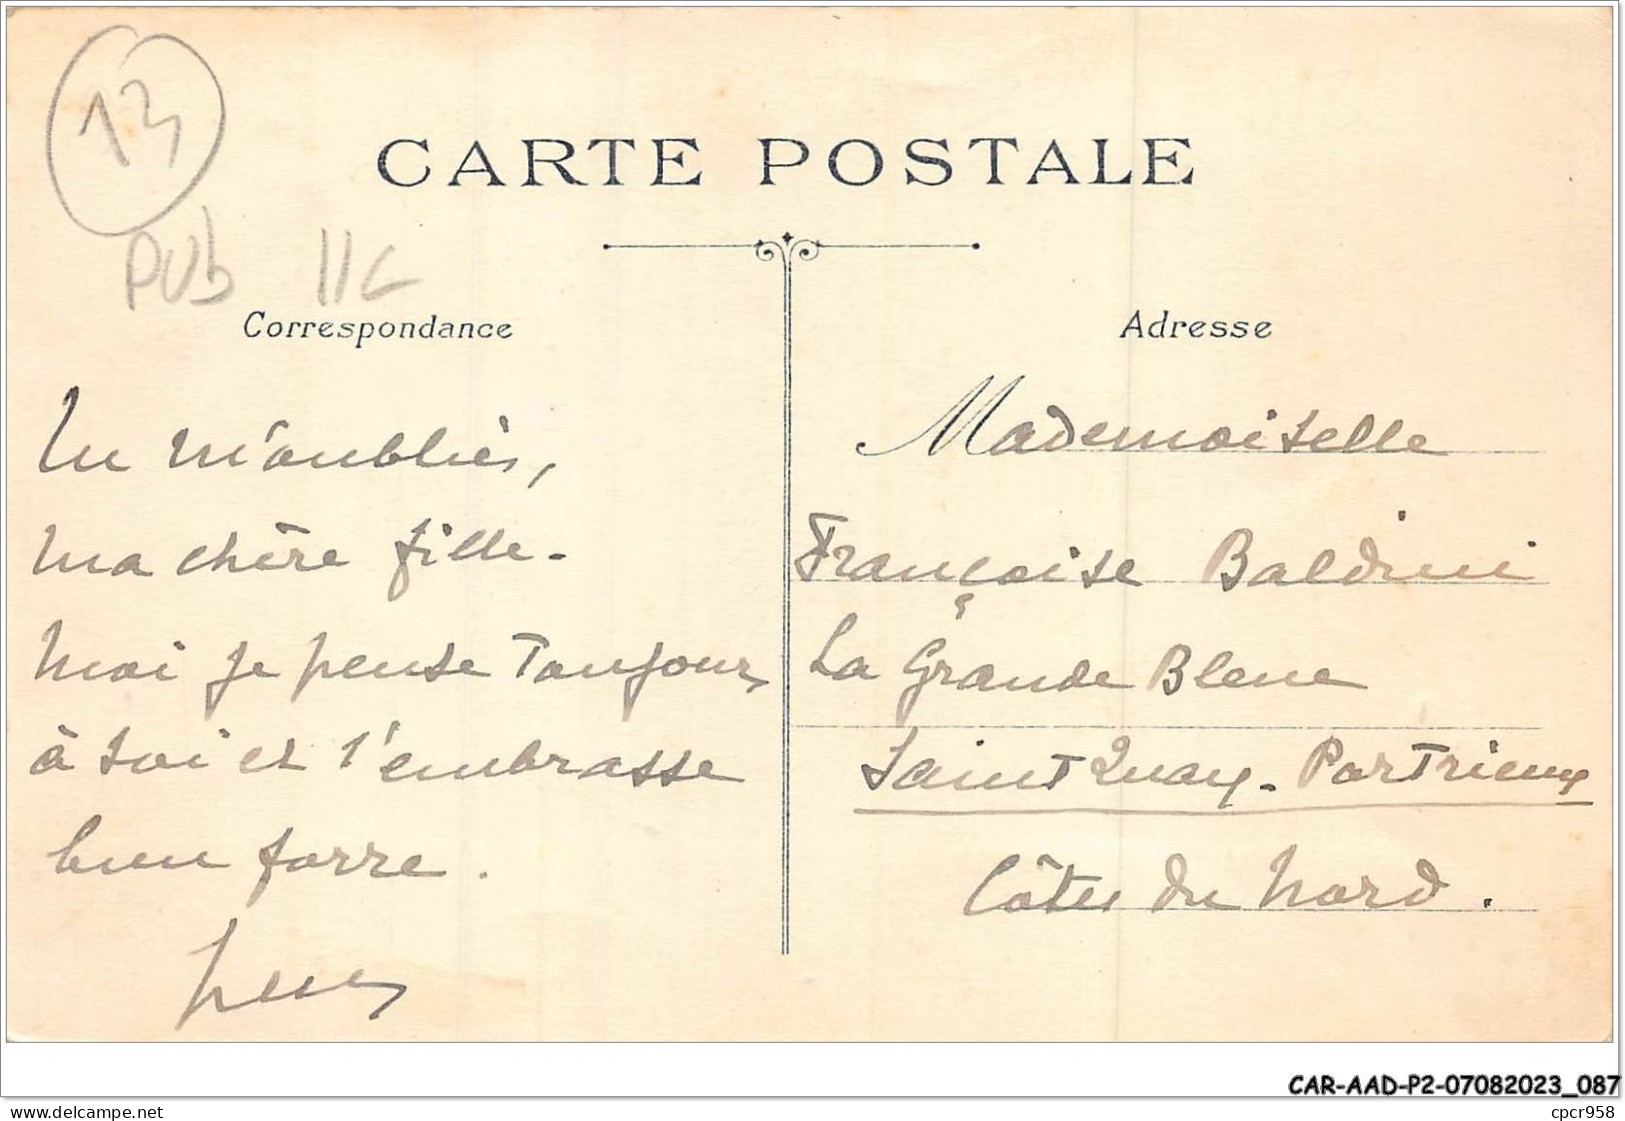 13
PUb 11C
CARTE POSTALE
Correspondance
Tu m'oublies,
ma chère fille -
Moi je pense Toujours
à toi et t'embrasse
bien forre.
Adresse
Mademoiselle
Françoise Baldini
La Grande Bleue
Saint Quay - Portrieux
Côtes du Nord.
CAR-AAD-P2-07082023_087
delcampe.net
cpcr958